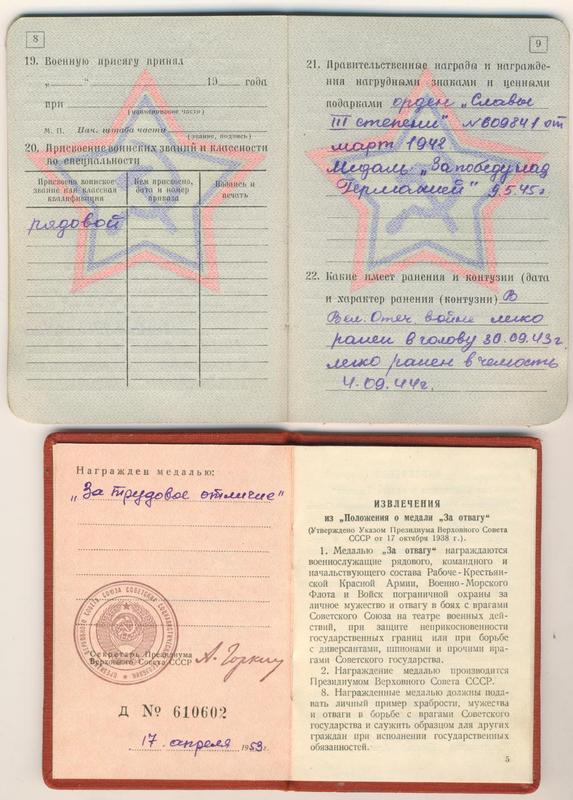 8
19. Военную присягу принял
„ “ 19 года
при
(наименование части)
М. П. Нач. штаба части
(звание, подпись)
20. Присвоение воинских званий и классности
по специальности
Присвоено воинское
звание или классная
квалификация
Кем присвоено,
дата и номер
приказа
Подпись и
печать
рядовой
9
21. Правительственные награды и награжде-
ния нагрудными знаками и ценными
подарками орден „Славы
III степени" № 609841 от
март 1942
Медаль „За победу над
Германией" 9.5.45г
22. Какие имеет ранения и контузии (дата
и характер ранения (контузии) В
Вел. Отеч войне легко
ранен в голову 30.09.43г.
легко ранен в челюсть
4.09.44г.
Награжден медалью:
„За трудовое отличие"
Секретарь Президиума
Верховного Совета СССР А. Горкин
Д № 610602
17 апреля 1953 г.
ИЗВЛЕЧЕНИЯ
из „Положения о медали „За отвагу“
(Утверждено Указом Президиума Верховного Совета
СССР от 17 октября 1938 г.).
1. Медалью „За отвагу“ награждаются
военнослужащие рядового, командного и
начальствующего состава Рабоче-Крестьян-
ской Красной Армии, Военно-Морского
Флота и Войск пограничной охраны за
личное мужество и отвагу в боях с врагами
Советского Союза на театре военных дей-
ствий, при защите неприкосновенности
государственных границ или при борьбе
с диверсантами, шпионами и прочими вра-
гами Советского государства.
2. Награждение медалью производится
Президиумом Верховного Совета СССР.
8. Награжденные медалью должны пода-
вать личный пример храбрости, мужества
и отваги в борьбе с врагами Советского
государства и служить образцом для других
граждан при исполнении государственных
обязанностей.
5